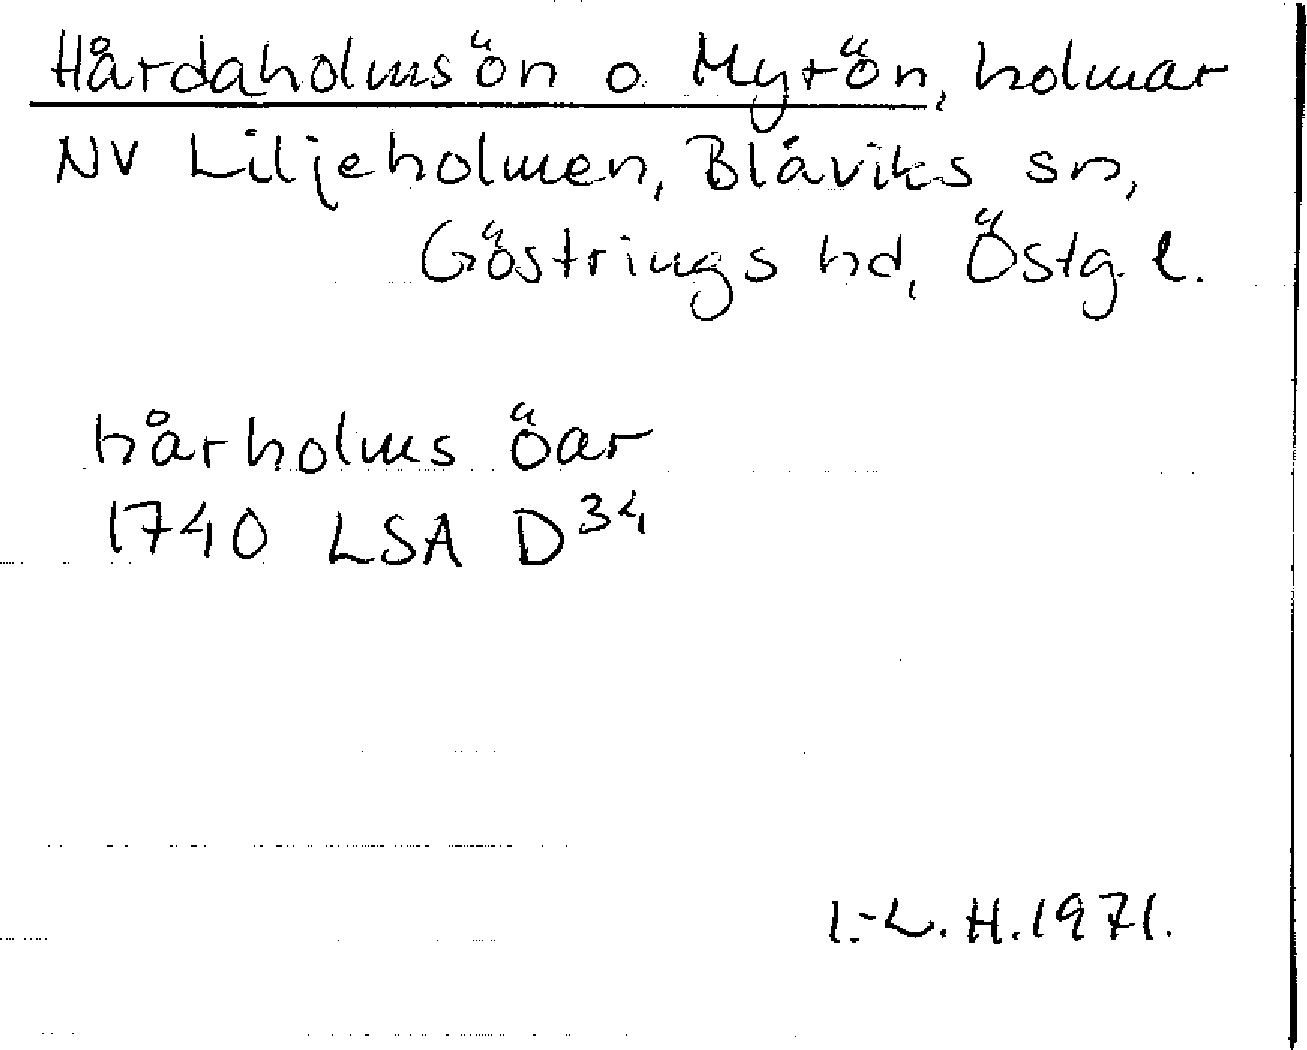 Hårdaholmsön o. Myrön, holmar
NV Liljeholmen, Blåviks sn,
Göstrings hd, Östg. l.
hårholms öar
1740 LSA D34
I.-L. H. 1971.